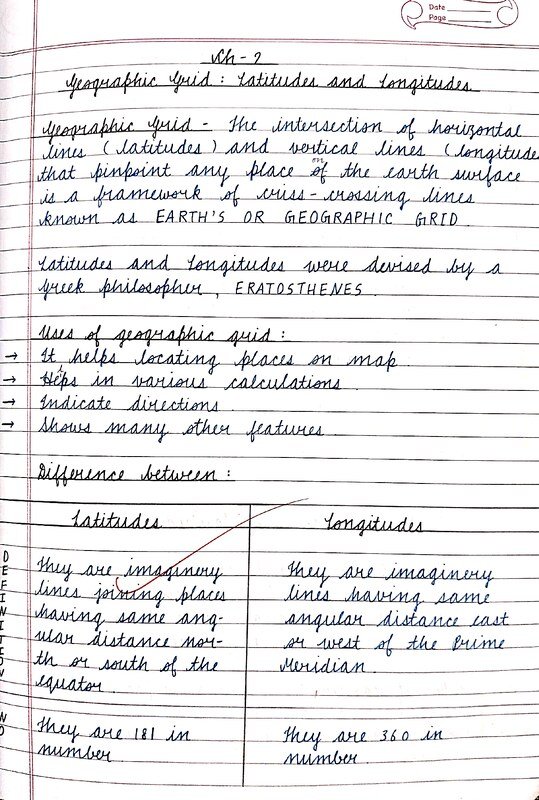 Date
Page
Ch - 2
Geographic Grid : Latitudes and Longitudes
Geographic Grid - The intersection of horizontal
lines (latitudes) and vertical lines (longitude
on
that pinpoint any place of the earth surface
is a framework of criss-crossing lines
known as EARTH'S OR GEOGRAPHIC GRID
Latitudes and Longitudes were devised by a
greek philosopher, ERATOSTHENES
Uses of geographic grid :
→ It helps locating places on map
→ Helps in various calculations
→ Indicate directions
→ Shows many other features
Difference between :
Latitudes
Longitudes
DEFINITION
They are imaginery
lines joining places
having same ang-
ular distance nor-
th or south of the
equator
They are imaginery
lines having same
angular distance east
or west of the Prime
Meridian
NO
They are 181 in
number
They are 360 in
number